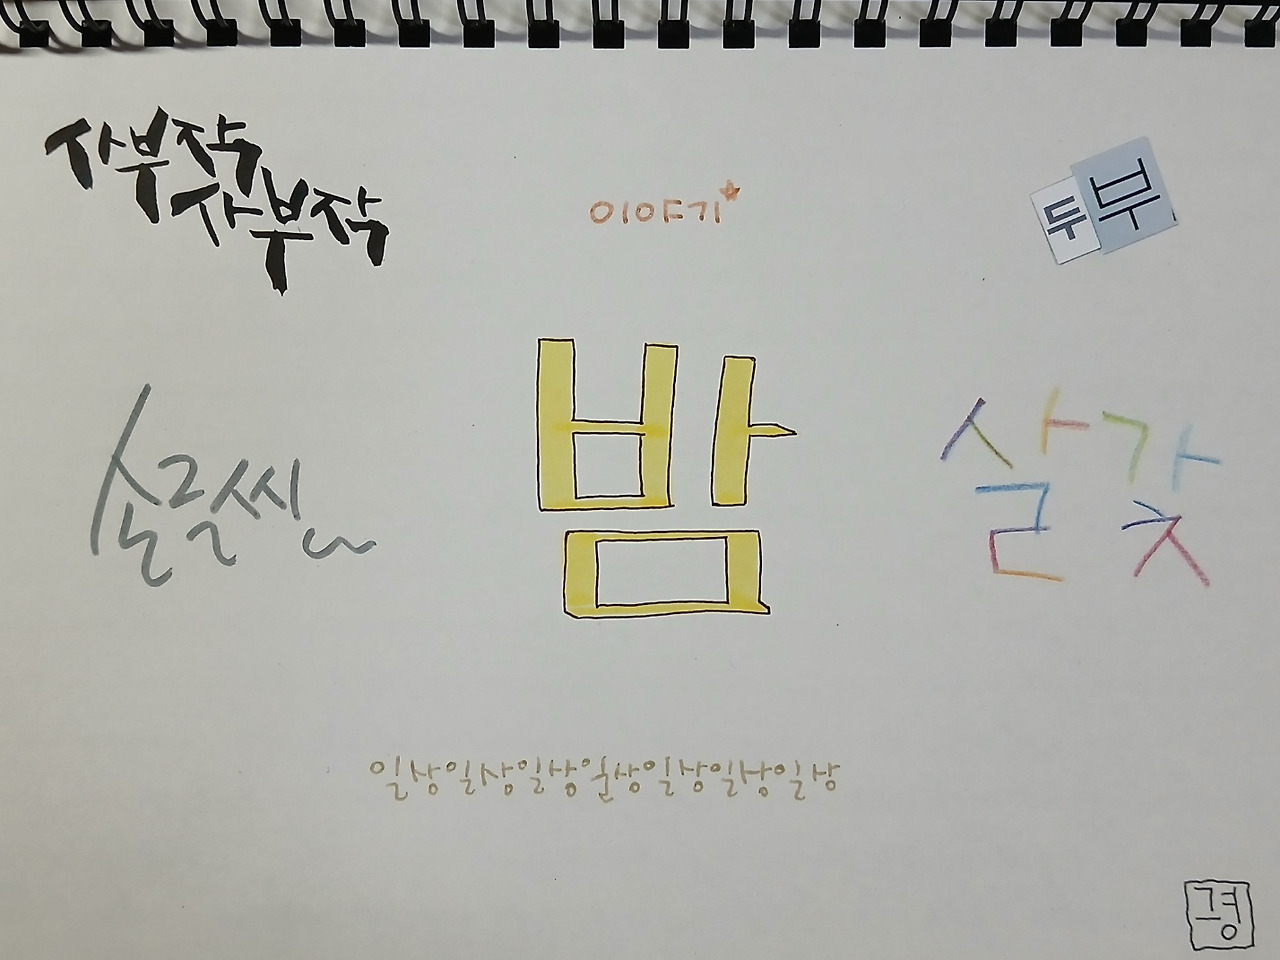 사부작
사부작
이야기*
두부
손글씨
밤
살갗
일상일상일상일상일상일상일상
경